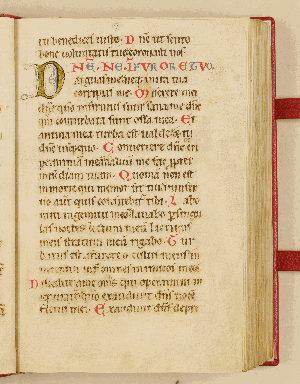 tu benedices iusto. Dn̄e ut scuto
bone voluntatis tue coronasti nos.
DNE·NE·IN FUROR E TVO
arguas me neq; in ira tua
corripias me. Miserere mei
dn̄e qm̄ infirmus sum sana me dn̄e
qm̄ conturbata sunt ossa mea. Et
anima mea turbata est valde sed tu
dn̄e usq;quo. Convertere dn̄e et
animam meam me fac propter
misericordiam tuam. Quoniam non est
in morte qui memor sit tui in infer
no autē quis confitebitur tibi. Labo
ravi in gemitu meo lavabo per singu
las noctes lectum meum lacrimis
meis stratum meū rigabo. Tur
batus est a furore oculus meus in
veteravi inter omnes inimicos meos
Discedite a me omēs qui operamini in
iquitatē qm̄ exaudivit dn̄s vocē
fletus mei. Exaudivit dn̄s depre